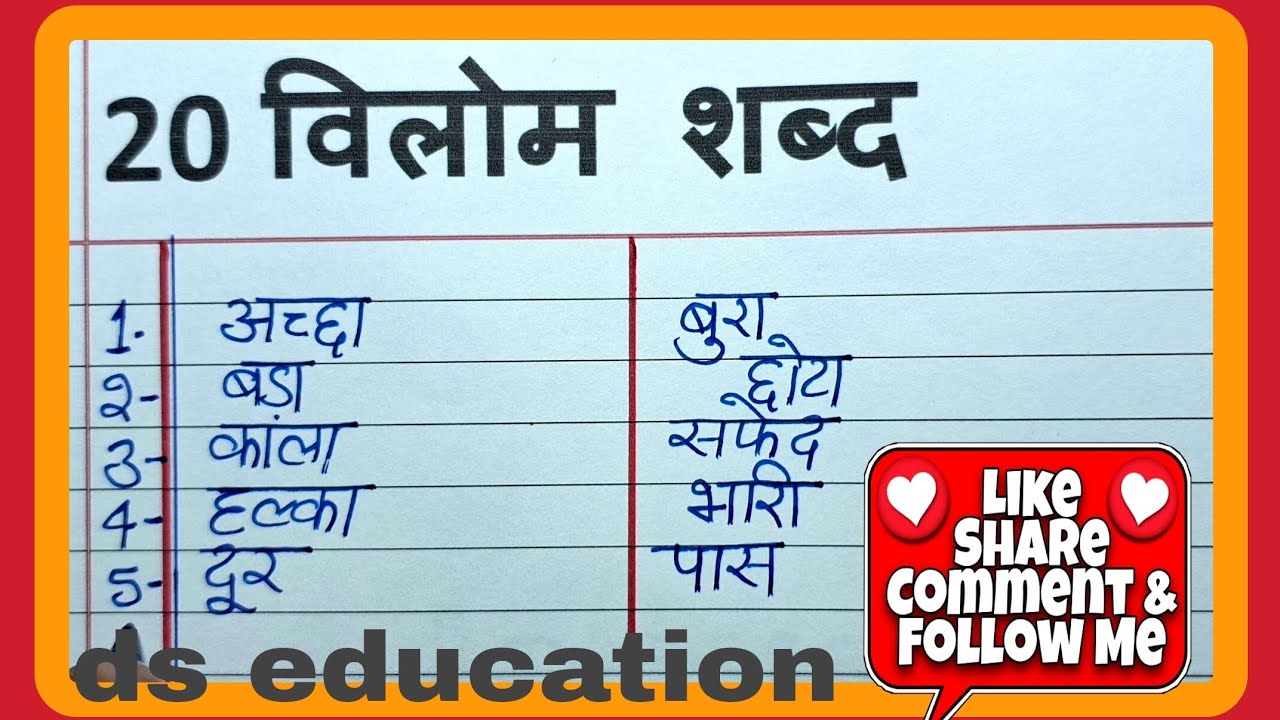 20 विलोम शब्द
1- अच्छा बुरा
2- बडा छोटा
3- कांला सफेद
4- हल्का भारी
5- दूर पास
ds education
LIKE
SHARE
COMMENT &
FOLLOW ME